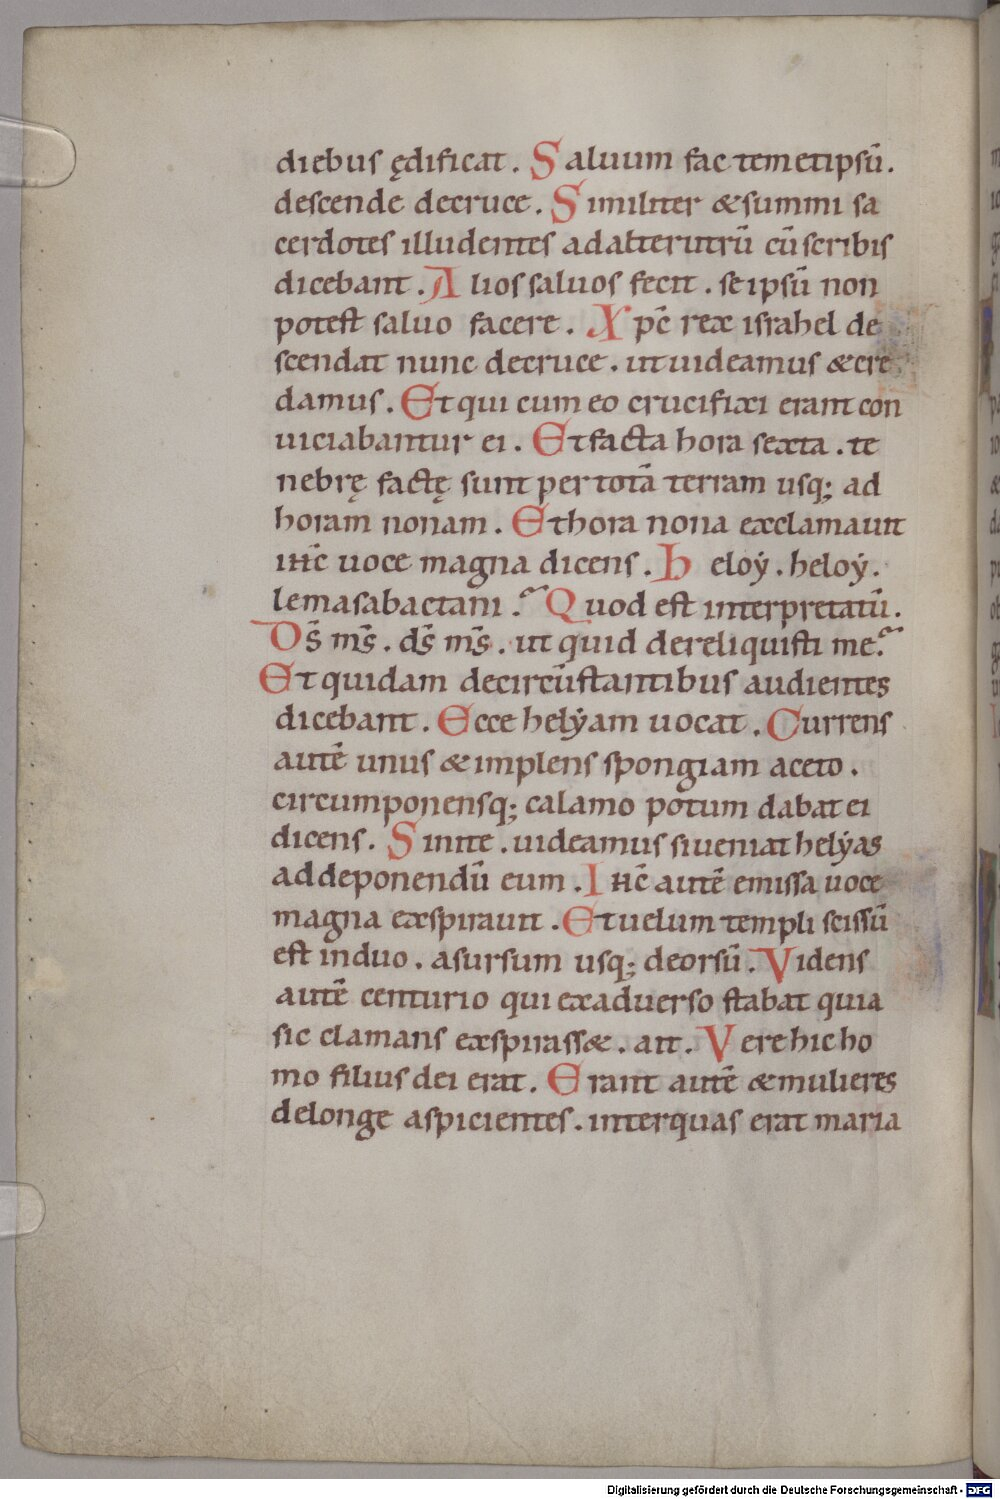 diebus ędificat. Saluum fac temetipsū.
descende decruce. Similiter &summi sa
cerdotes illudentes adalterutrū cūscribis
dicebant. Alios saluos fecit. seipsū non
potest saluo facere. Xpc̄ rex israhel de
scendat nunc decruce. utuideamus &cre
damus. Etqui cum eo crucifixi erant con
uiciabantur ei. Etfacta hora sexta. te
nebrę factę sunt per totā terram usq; ad
horam nonam. Ethora nona exclamauit
ihc̄ uoce magna dicens. Heloẏ. heloẏ.
lemasabactani.? Quod est interpretatū.
Ds̄ ms̄. ds̄ ms̄. ut quid dereliquisti me?
Et quidam decircūstantibus audientes
dicebant. Ecce helẏam uocat. Currens
autē unus &implens spongiam aceto.
circumponensq; calamo potum dabat ei
dicens. Sinite. uideamus siueniat helẏas
addeponendū eum. Ihc̄ autē emissa uoce
magna exspirauit. Etuelum templi scissū
est induo. asursum usq; deorsū. Videns
autē centurio qui exaduerso stabat quia
sic clamans exspirass&. ait. Vere hic ho
mo filius dei erat. Erant autē &mulieres
delonge aspicientes. interquas erat maria
Digitalisierung gefördert durch die Deutsche Forschungsgemeinschaft - DFG